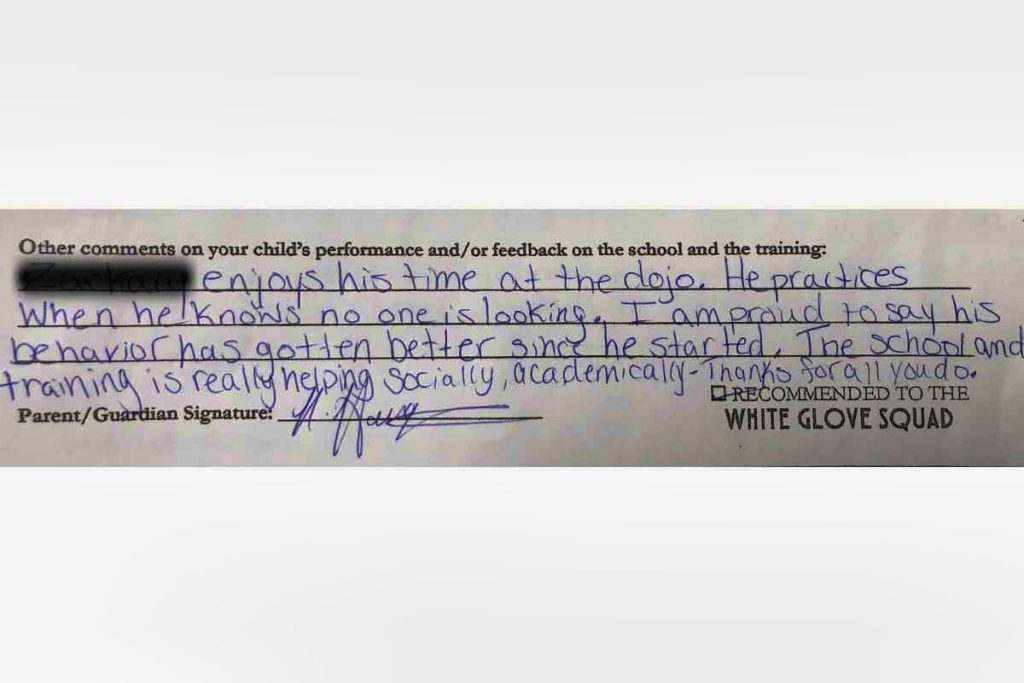 Other comments on your child's performance and/or feedback on the school and the training:
enjoys his time at the dojo. He practices
When he knows no one is looking. I am proud to say his
behavior has gotten better since he started. The school and
training is really helping socially, academically - Thanks for all you do.
Parent/Guardian Signature:
RECOMMENDED TO THE
WHITE GLOVE SQUAD